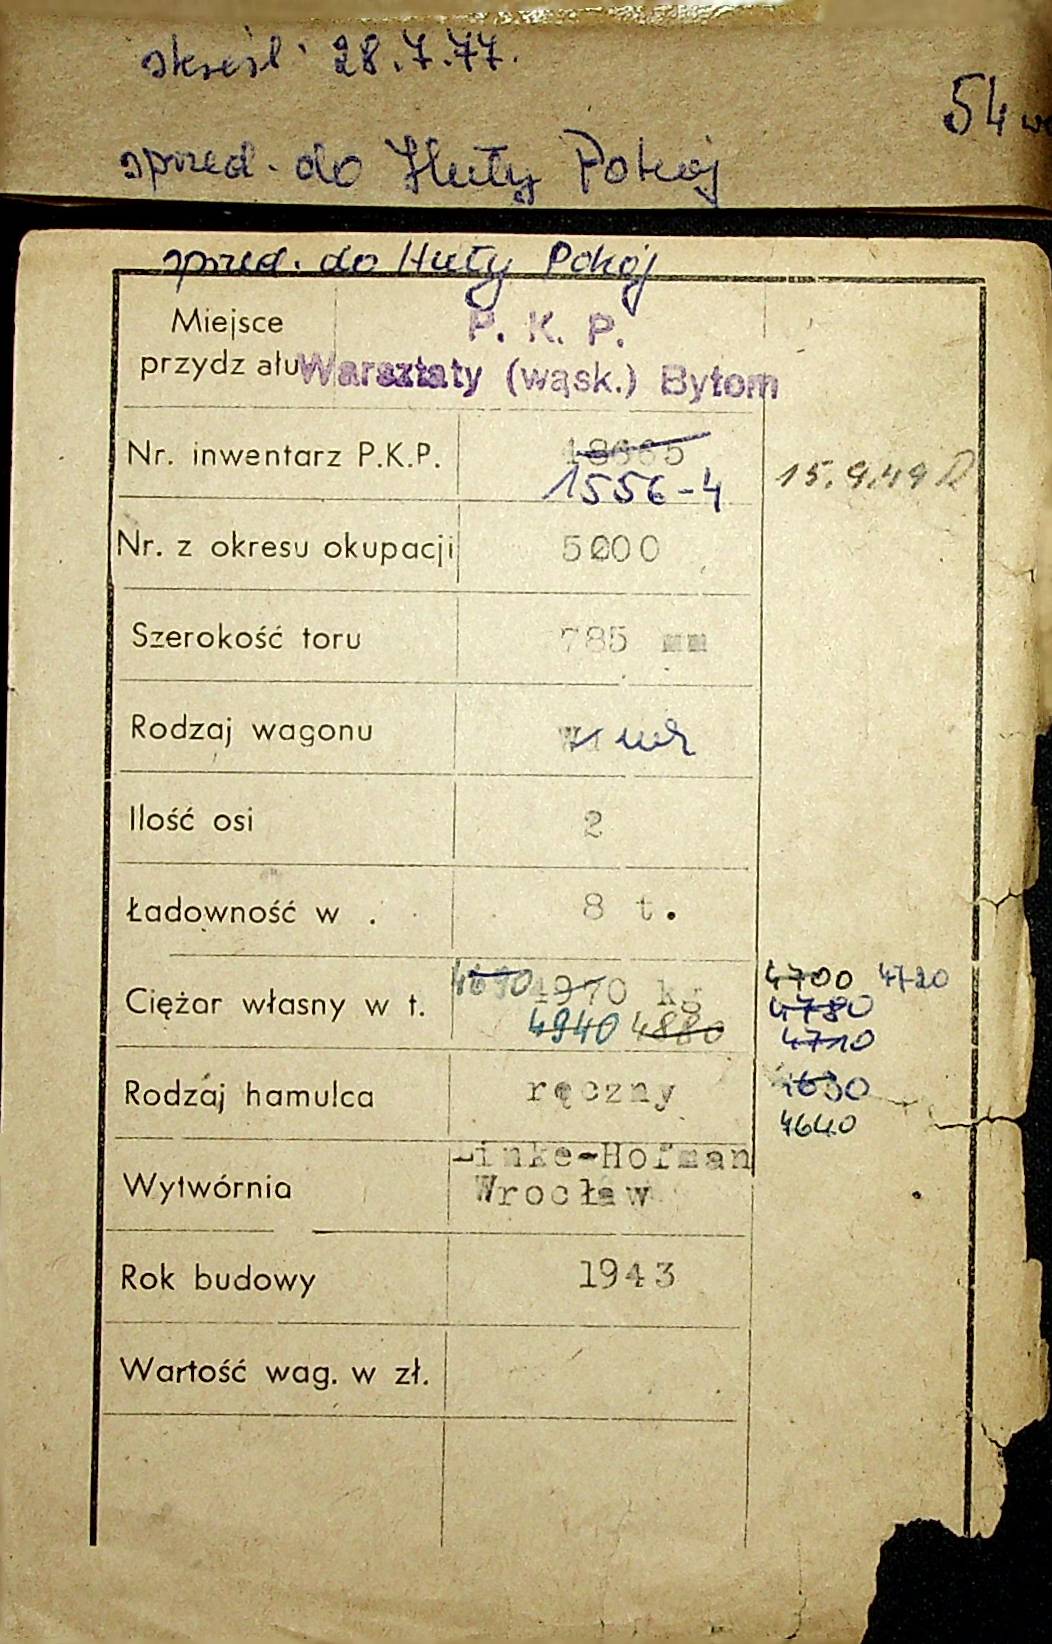 skreśl. 28.7.77.
54
sprzed. do Huty Pokój
sprzed. do Huty Pokój
Miejsce przydz ału P. K. P.
Warsztaty (wąsk.) Bytom
Nr. inwentarz P.K.P. 18665
1556-4 15.9.49
Nr. z okresu okupacji 5000
Szerokość toru 785 mm
Rodzaj wagonu
Ilość osi 2
Ładowność w . 8 t.
Ciężar własny w t. 4690 4970 kg 4700 4720
4940 4880 4780
4710
Rodzaj hamulca ręczny 4630
4640
Wytwórnia Linke-Hofman
Wrocław
Rok budowy 1943
Wartość wag. w zł.